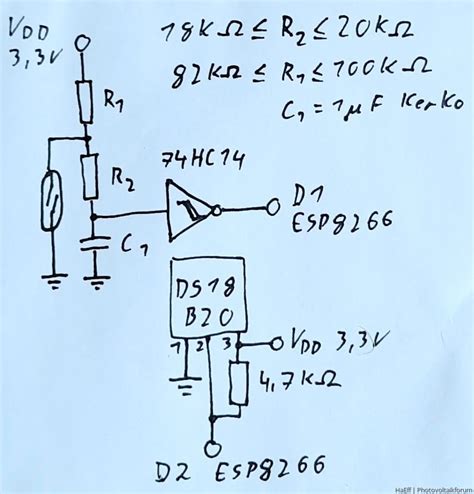 VDD
3,3V
18kΩ ≤ R2 ≤ 20kΩ
82kΩ ≤ R1 ≤ 100kΩ
C1 = 1µF KerKo
R1
74HC14
R2
D1
ESP8266
C1
DS18
B20
1 2 3
VDD 3,3V
4,7kΩ
D2 ESP8266
HaEff | Photovoltaikforum